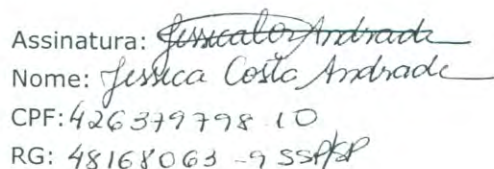 Assinatura: Jessica Cos Andrade
Nome: Jessica Costa Andrade
CPF: 426379798 10
RG: 48168063-9 SSP/SP